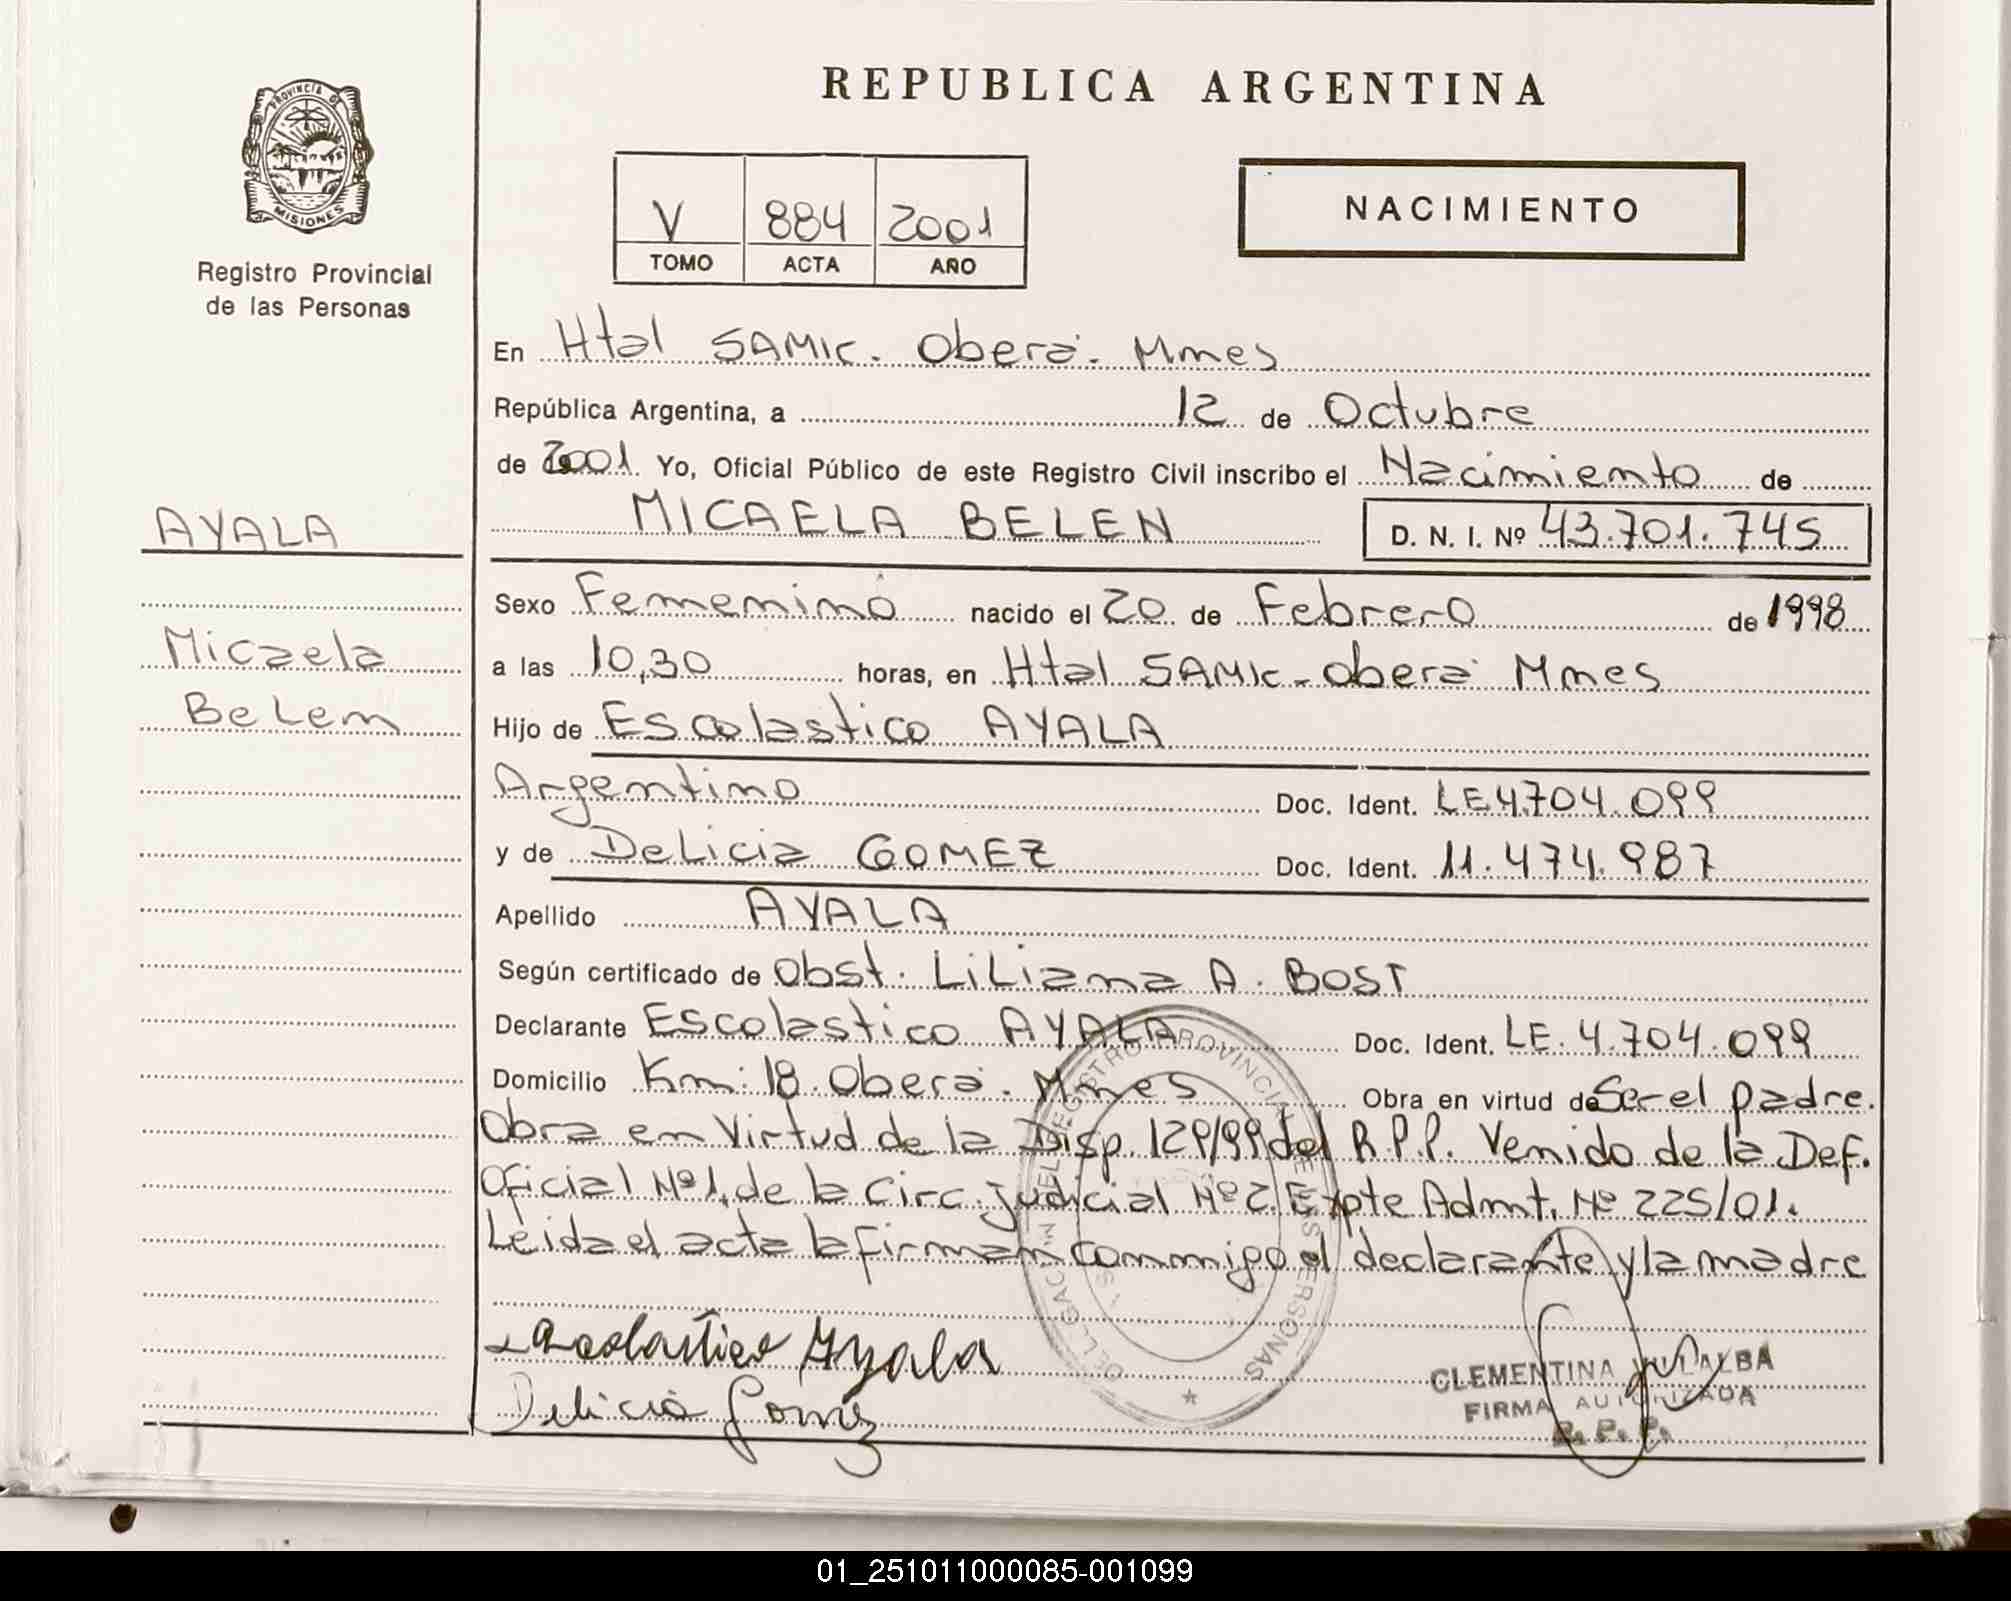 REPUBLICA ARGENTINA
PROVINCIA DE
MISIONES
Registro Provincial
de las Personas
V 884 2001
TOMO ACTA AÑO
NACIMIENTO
En Htal SAMIC. Oberá. Mnes
República Argentina, a 12 de Octubre
de 2001. Yo, Oficial Público de este Registro Civil inscribo el Nacimiento de
MICAELA BELEN D. N. I. Nº 43.701.745
AYALA
Micaela
Belen
Sexo Femenino nacido el 20 de Febrero de 1998
a las 10,30 horas, en Htal SAMIC - Oberá Mnes
Hijo de Escolastico AYALA
Argentino Doc. Ident. LE 4.704.099
y de Delicia GOMEZ Doc. Ident. 11.474.987
Apellido AYALA
Según certificado de Obst. Liliana A. BOST
Declarante Escolastico AYALA Doc. Ident. LE. 4.704.099
Domicilio Km: 18. Oberá. Mnes Obra en virtud de Ser el padre.
Obra en Virtud de la Disp. 129/99 del R.P.P. Venido de la Def.
Oficial Nº1, de la Circ. Judicial Nº2. Expte Admt. Nº 225/01.
Leida el acta la firman conmigo el declarante y la madre
Escolastico Ayala
Delicia Gomez
CLEMENTINA VILLALBA
FIRMA AUTORIZADA
R. P. P.
01_251011000085-001099